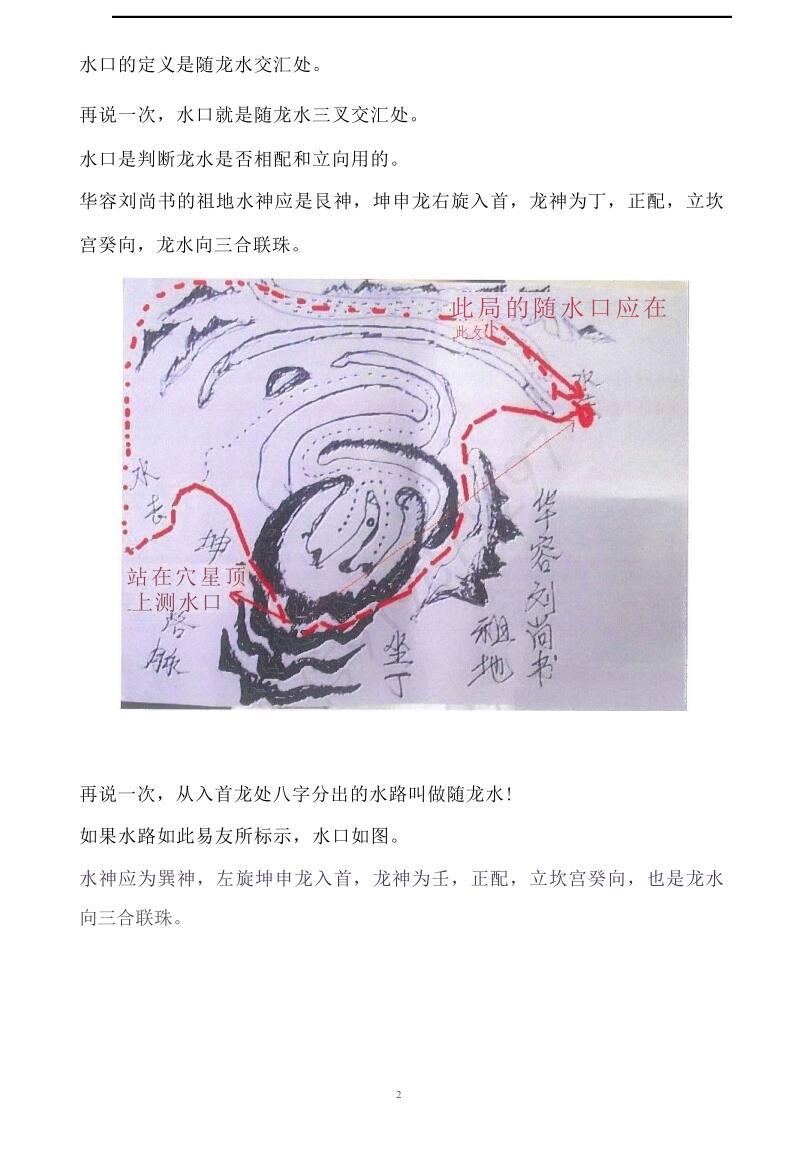 水口的定义是随龙水交汇处。
再说一次，水口就是随龙水三叉交汇处。
水口是判断龙水是否相配和立向用的。
华容刘尚书的祖地水神应是艮神，坤申龙右旋入首，龙神为丁，正配，立坎
宫癸向，龙水向三合联珠。
此局的随水口应在
此交
水
去
坤
站在穴星顶
上测水口
坐
丁
华容刘尚书
祖地
再说一次，从入首龙处八字分出的水路叫做随龙水!
如果水路如此易友所标示，水口如图。
水神应为巽神，左旋坤申龙入首，龙神为壬，正配，立坎宫癸向，也是龙水
向三合联珠。
2